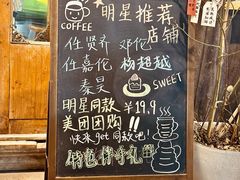 明星推荐
COFFEE
店铺
任贤齐 邓伦
任嘉伦 杨超越
秦昊
SWEET
明星同款 ¥19.9
美团团购!!
快来get同款吧!